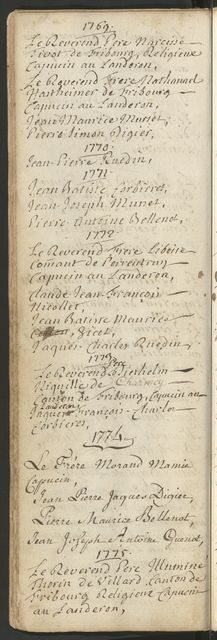 1769.
Le Reverend Pere Narcisse
Pivot de Fribourg, Religieux
Capucin au Landeron,
Le Reverend Frere Nathanael
de Fribourg
Capucin au Landeron,
Jean Maurice Muriset,
Pierre Simon Digier,
1770.
Jean Pierre Ruedin,
1771.
Jean Batiste Corbieres,
Jean Joseph Munet,
Pierre Antoine Bellenot,
1772.
Le Reverend Frere Liboire
de Porrentruy
Capucin au Landeron,
Claude Jean François
Nicollet,
Jean Batiste Maurice
Vicet,
Jaques Charles Ruedin
1773
Le Reverend Pere
Niquille de Charmey
Canton de Fribourg, Capucin au
Landeron
Jaques François Charles
Corbieres,
1774.
Le Frère Morand Mamie
Cappucin,
Jean Pierre Jaques Digier,
Pierre Maurice Bellenot,
Jean Joseph Antoine Quenot,
1775.
Le Reverend Pere Illuminé
Thorin de Villard Canton de
Fribourg Religieux Capucin
au Landeron,